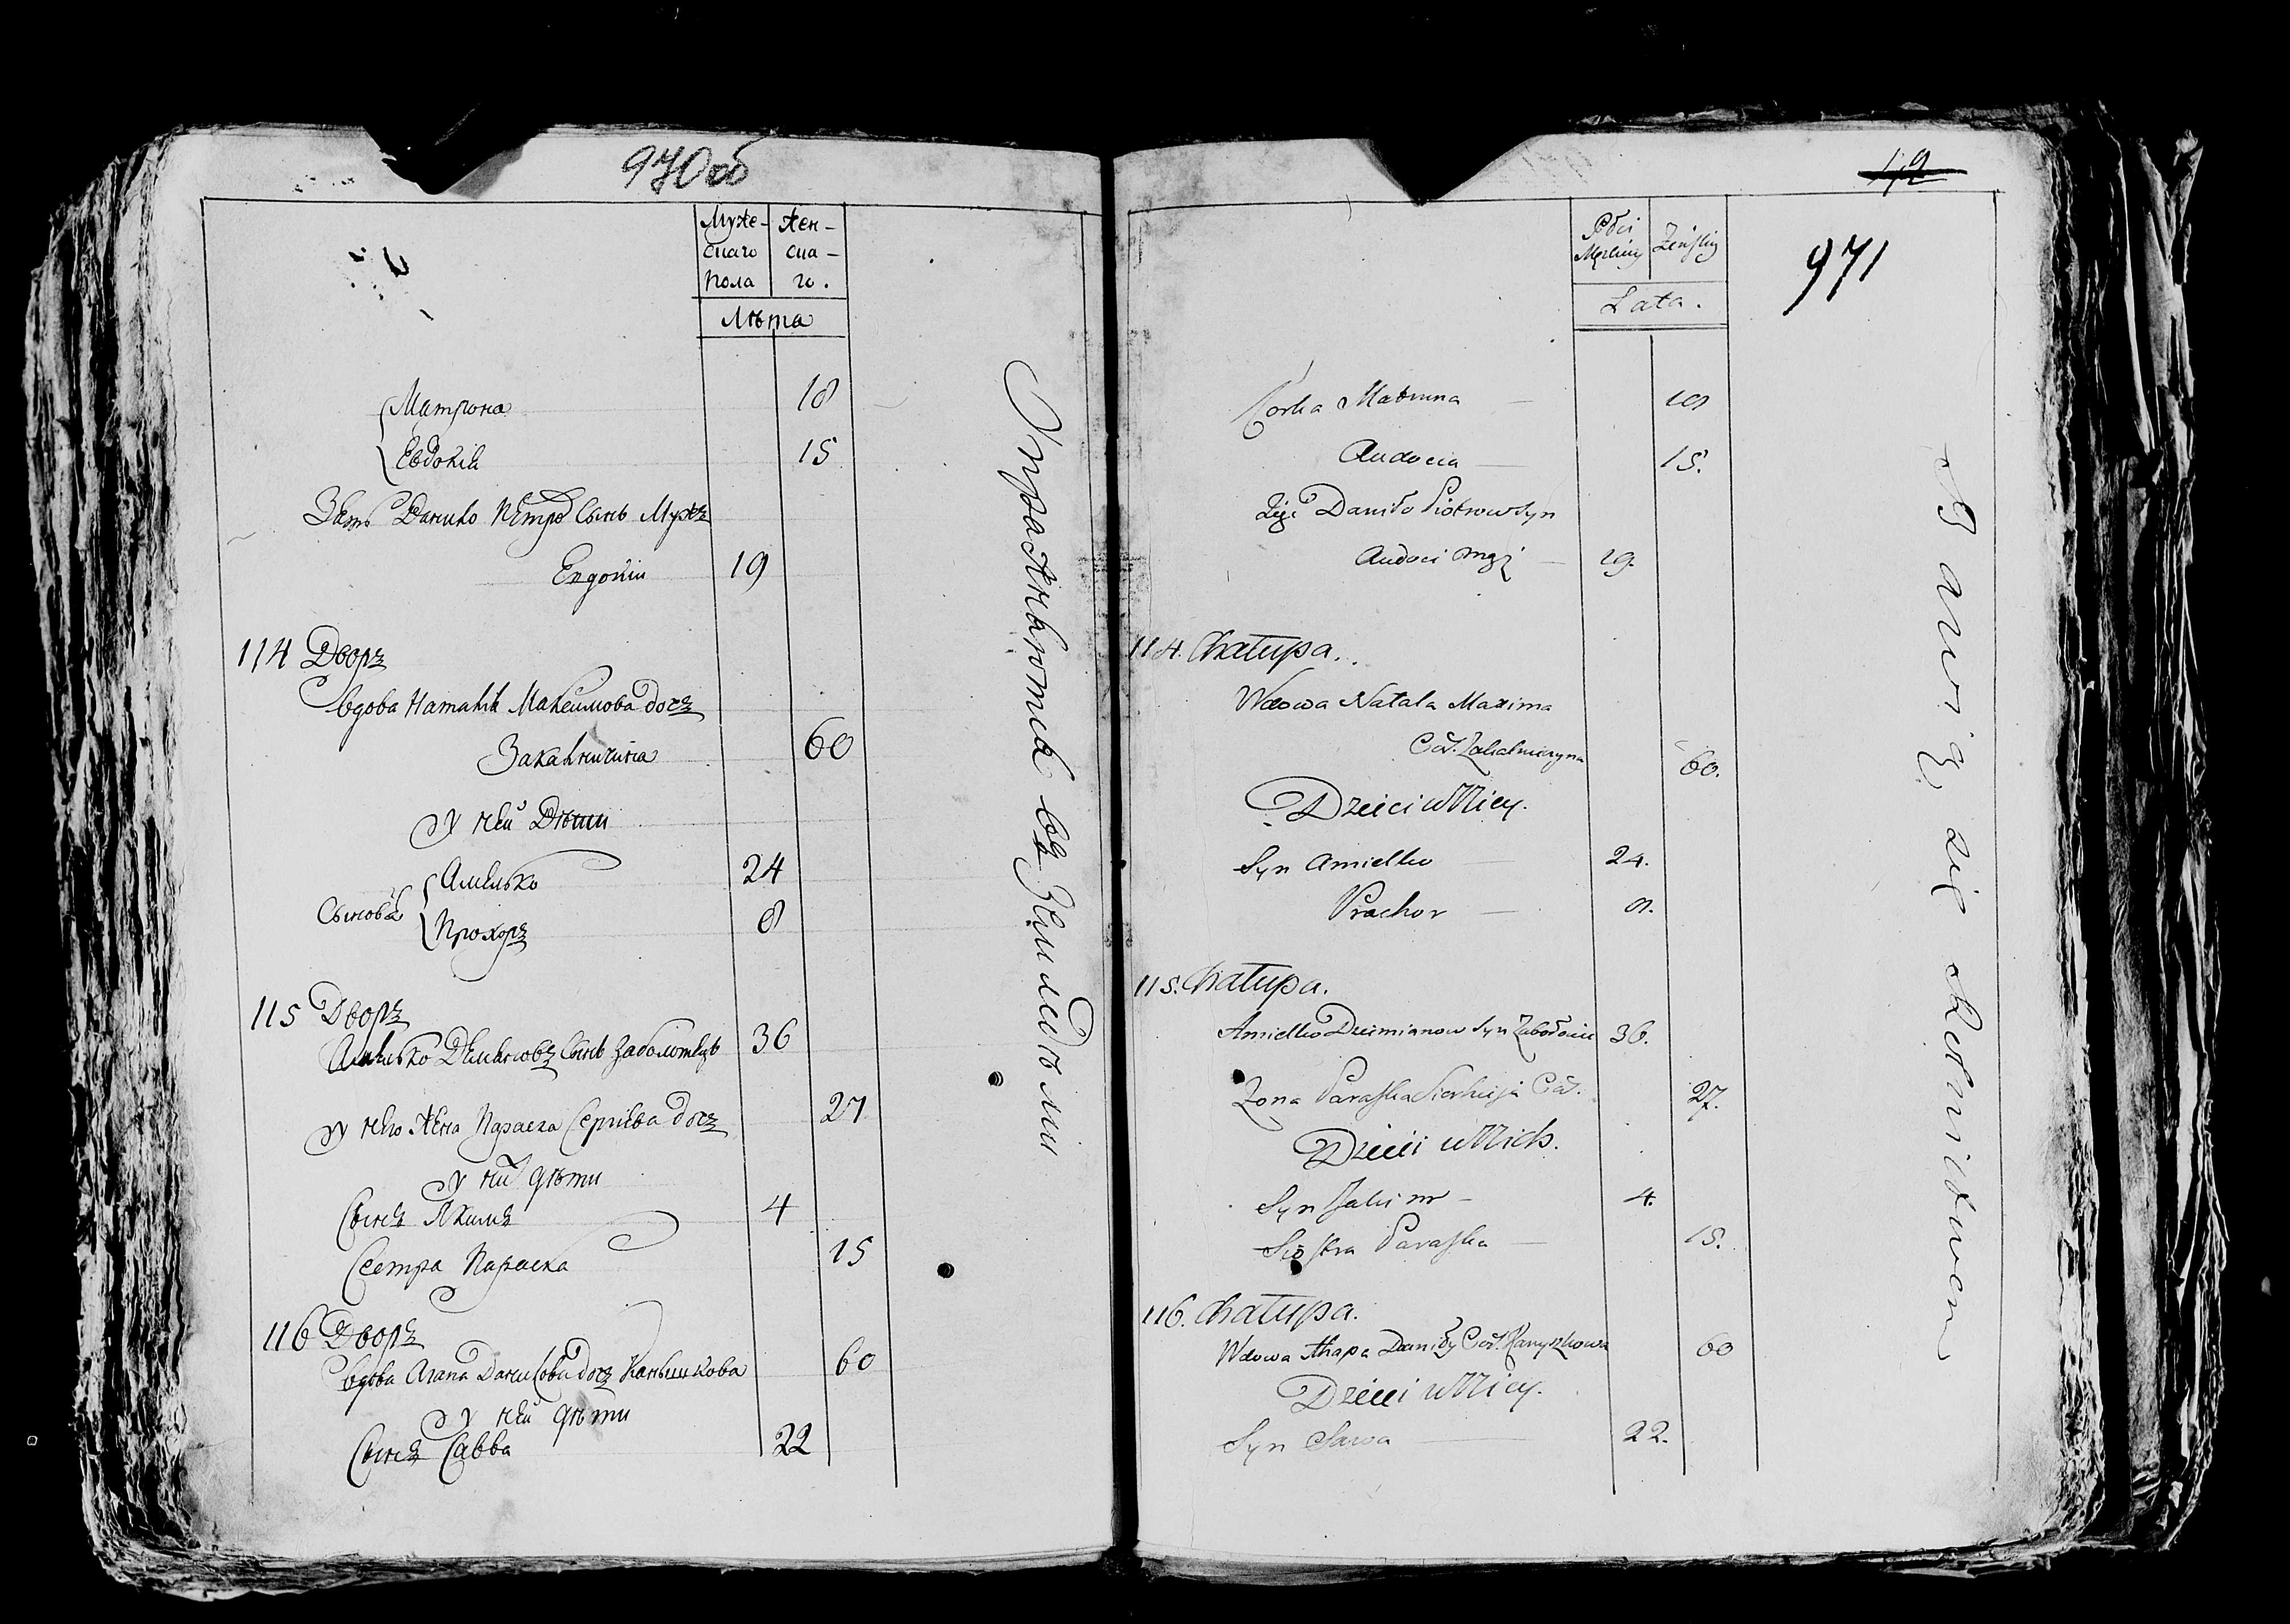 970об
Муже-
скаго
пола
Жен-
ска-
го.
Лѣта
Матрона 18
Евдокія 15
Зять Данило Петровъ Сынъ Мужъ
Евдокіи 19
114 Дворъ
Вдова Наталія Максимова дочь
60
У ней Дѣти
Сыновья
Амелько 24
Прохоръ 8
115 Дворъ
Амелько Демьяновъ Сынъ Заболотецъ 36
У него Жена Параска Сергіева дочь 27
У них дѣти
Сынъ Якимъ 4
Сестра Параска 15
116 Дворъ
Вдова Агапа Данилова дочь Канышкова 60
У ней дѣти
Сынъ Савва 22
Упражняются въ Земледѣліи
49
971
Płci
Męzkiey
Żeńskiey
Lata.
Corka Matruna 18
Audocia 15.
Zięć Daniło Piotrow Syn
Audoci mąż 19.
114. Chałupa.
Wdowa Natala Maxima
60.
Dzieci u Niey.
Syn Amielko 24.
Prochor 8.
115. Chałupa.
Amielko Dziemianow Syn Zabołociec 36.
Zona Paraska Sierhieja Cór. 27.
Dzieci u Nich.
Syn Jakim 4.
Siostra Paraska 15.
116. Chałupa.
Wdowa Ahapa Daniły Cór. Kanyszkowa 60
Dzieci u Niey.
Syn Sawa 22.
Bawią się Rolnictwem